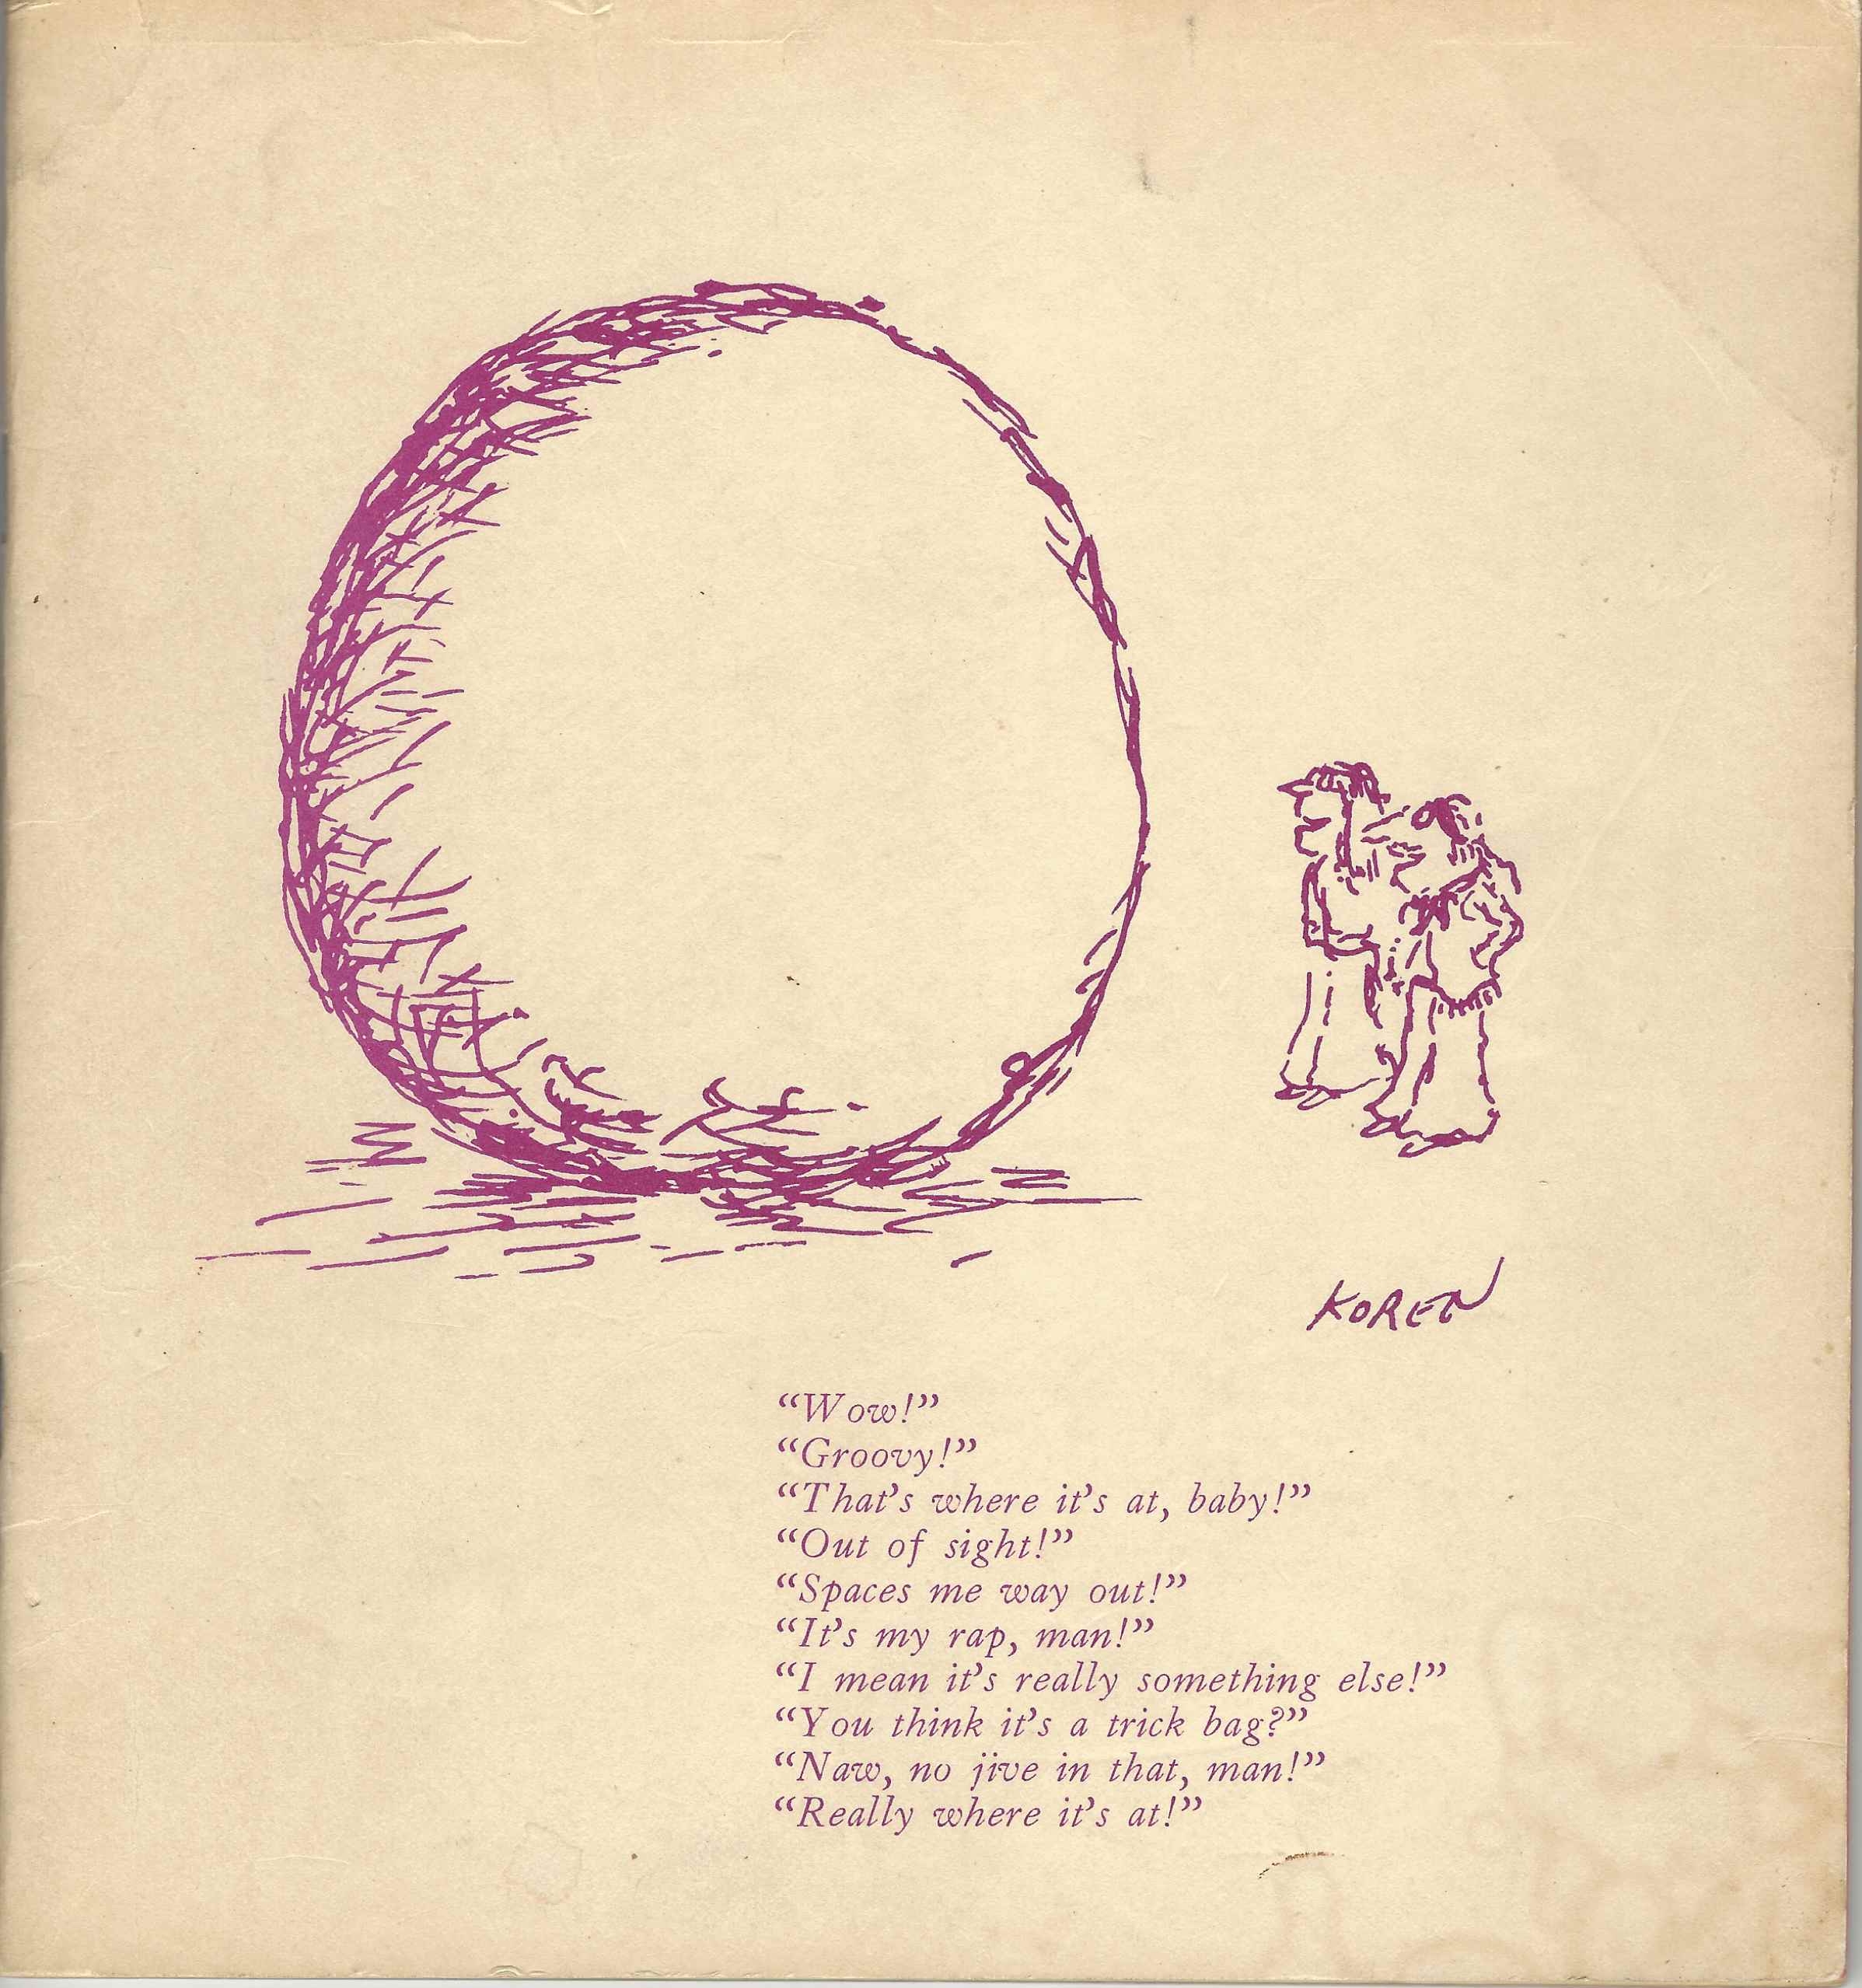 KOREN
“Wow!”
“Groovy!”
“That’s where it’s at, baby!”
“Out of sight!”
“Spaces me way out!”
“It’s my rap, man!”
“I mean it’s really something else!”
“You think it’s a trick bag?”
“Naw, no jive in that, man!”
“Really where it’s at!”